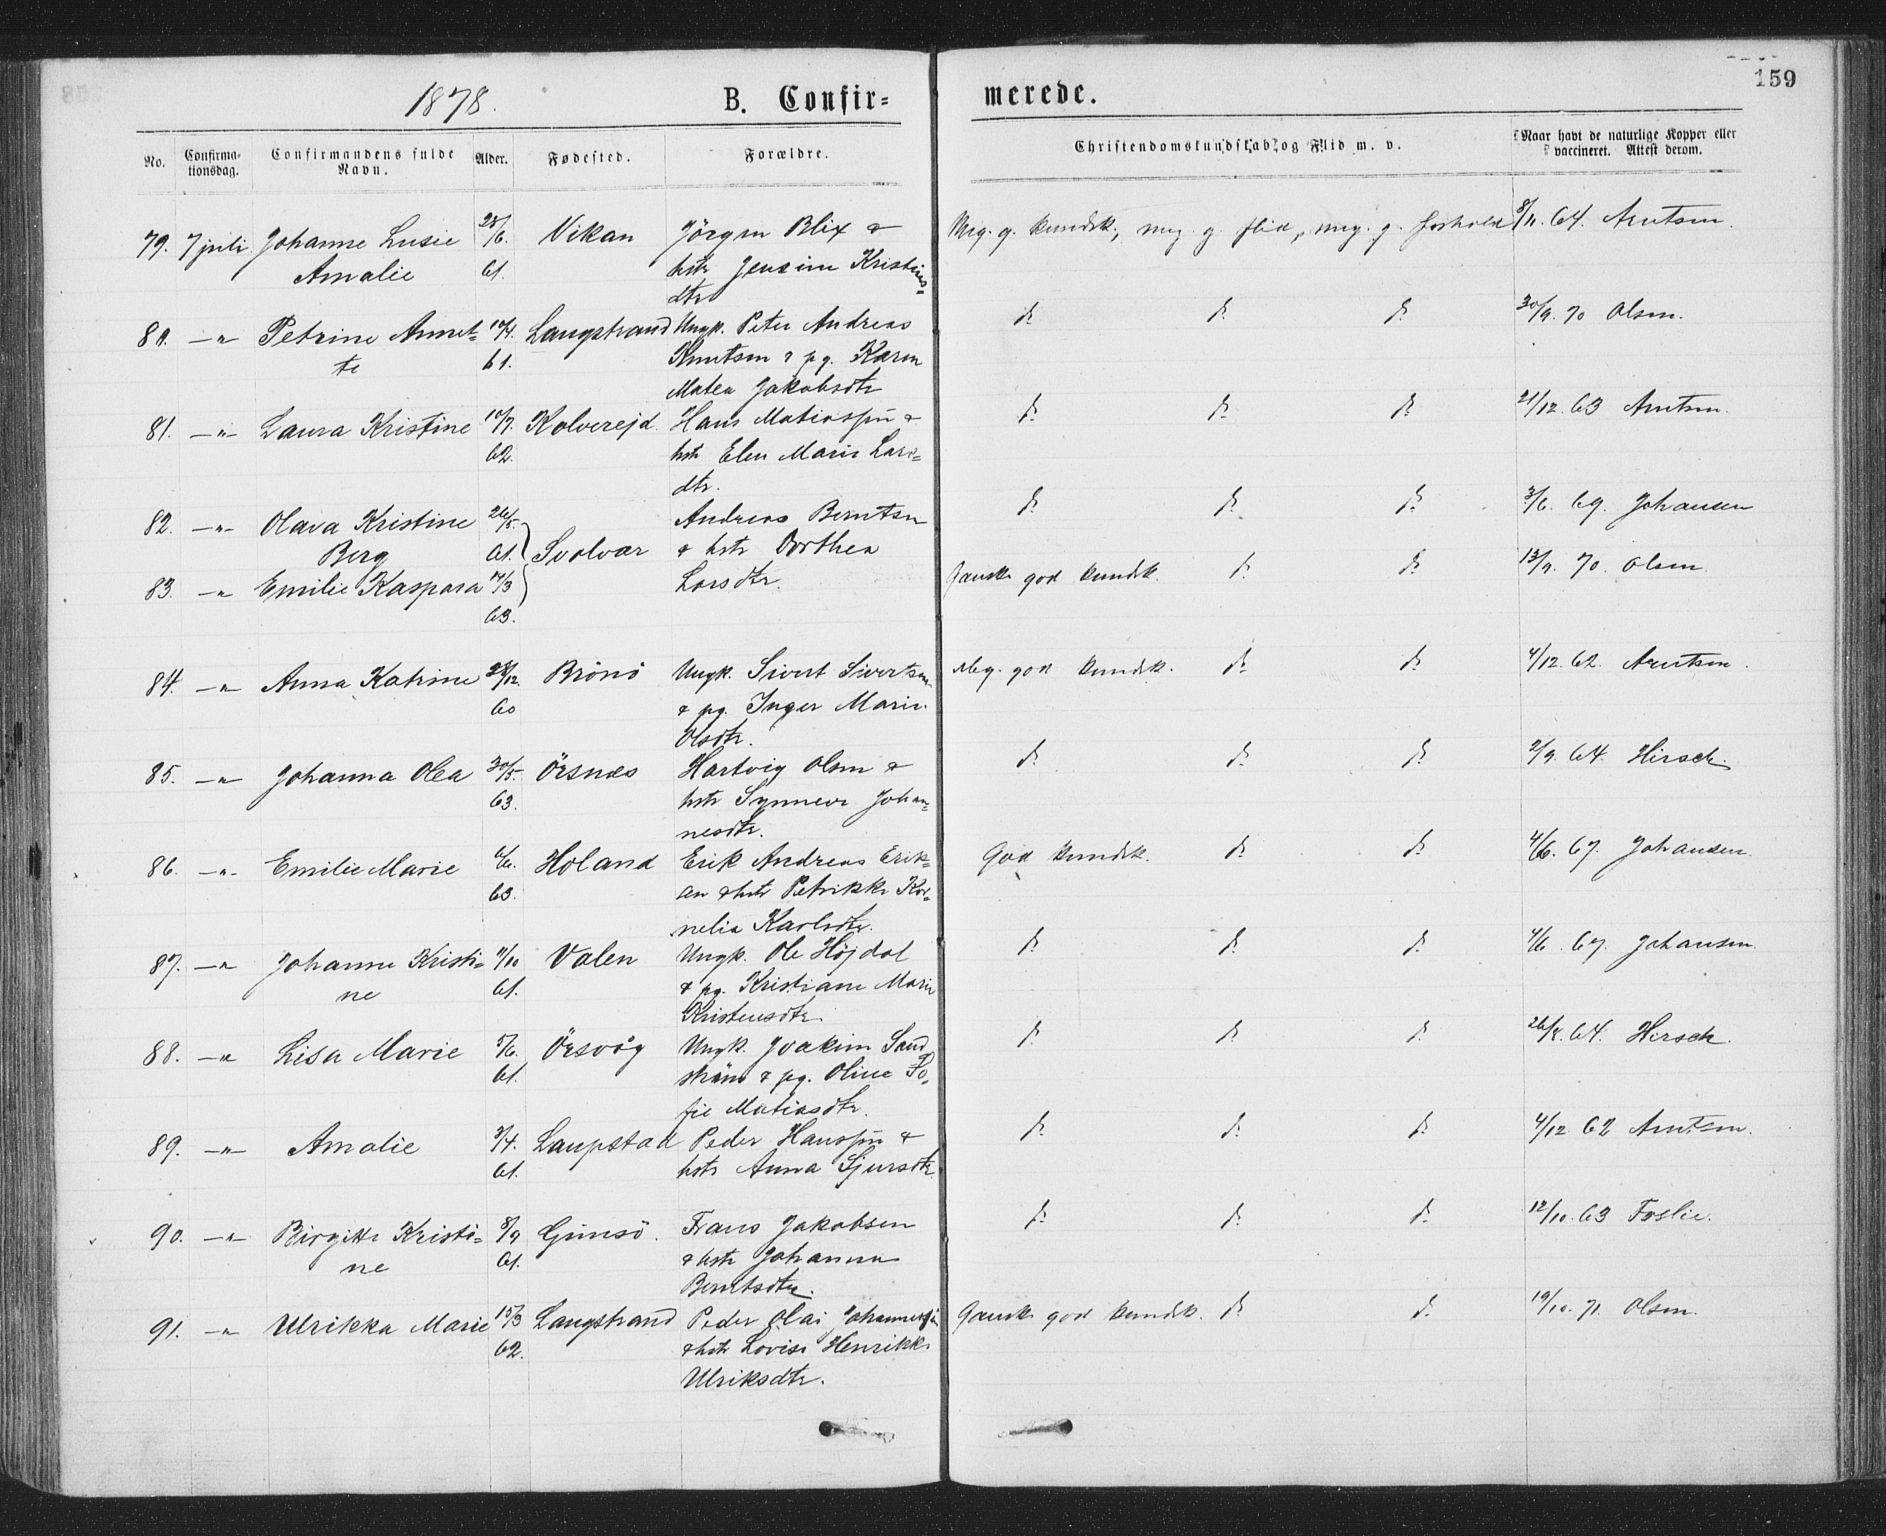 1878. B. Confir= merede. 159
No. Confirma- tionsdag. Confirmandens fulde Navn. Alder. Fødested. Forældre. Christendomskundskab og Flid m. v. Naar havt de naturlige Kopper eller vaccineret. Attest derom.
79. 7 juli Johanne Lusie 25/6. Vikan Jörgen Blix & Meg. g. kundsk., meg. g. flid, meg. g. forhold 8/11. 64. Arntsen.
Amalie 61. hstr Jensine Kristens-
dtr
80. —"— Petrine Annet= 10/4. Langstrand Ungk. Peter Andreas d. d. d. 30/9. 70 Olsen.
te 61. Knutsen & pg. Karen
Matea Jakobsdtr
81. —"— Laura Kristine 10/7. Kolvereid. Hans Matiassøn & d. d. d. 21/12. 63 Arntsen.
62. hstr Elen Marie Lars=
dtr.
82. —"— Olava Kristine 26/5. Andreas Berntsen d. d. d. 3/6. 69. Johansen
Berg 61. Svolvær & hstr Dorthea
83. —"— Emilie Kaspara 4/3 Larsdtr. Ganske god kundsk. d. d. 13/9. 70. Olsen.
63.
84. —"— Anna Katrine 28/12. Brönö Ungk. Sivert Sivertsen Meg. god kundsk. d. d. 4/12. 62. Arntsen.
60 & pg. Inger Marie
Olsdtr.
85. —"— Johanna Olea 30/5. Örsnes Hartvig Olsen & d. d. d. 2/9. 64. Hirsch.
63. hstr Synneve Johan=
nesdtr.
86. —"— Emilie Marie Holand Erik Andreas Erik= God kundsk. d. d. 4/6. 67. Johansen.
63. sen & hstr Petrikke Kor=
nelia Karlsdtr.
87. —"— Johanne Kristi= 11/10 Valen Ungk. Ole Højdal d. d. d. 4/6. 67. Johansen.
ne 61. & pg. Kristiane Marie
Kristensdtr.
88. —"— Lisa Marie 5/6. Örsvåg Ungk. Joakim Sand d. d. d. 26/8. 64. Hirsch.
61. ström & pg. Oline So=
fie Matiasdtr.
89. —"— Amalie 3/4. Laupstad Peder Hanssøn & d. d. d. 4/12 62 Arntsen.
61. hstr Anna Sjursdtr
90. —"— Birgitte Kristi= 8/9 Gimsö. Frans Jakobsen d. d. d. 12/10. 63 Foslie.
ne 61. & hstr Johanna
Berntsdtr.
91. —"— Ulrikka Marie 15/3 Langstrand Peder Olai Johannessøn Ganske god kundsk. d. d. 19/10. 71. Olsen.
62. & hstr Lovise Henrikke
Ulriksdtr.